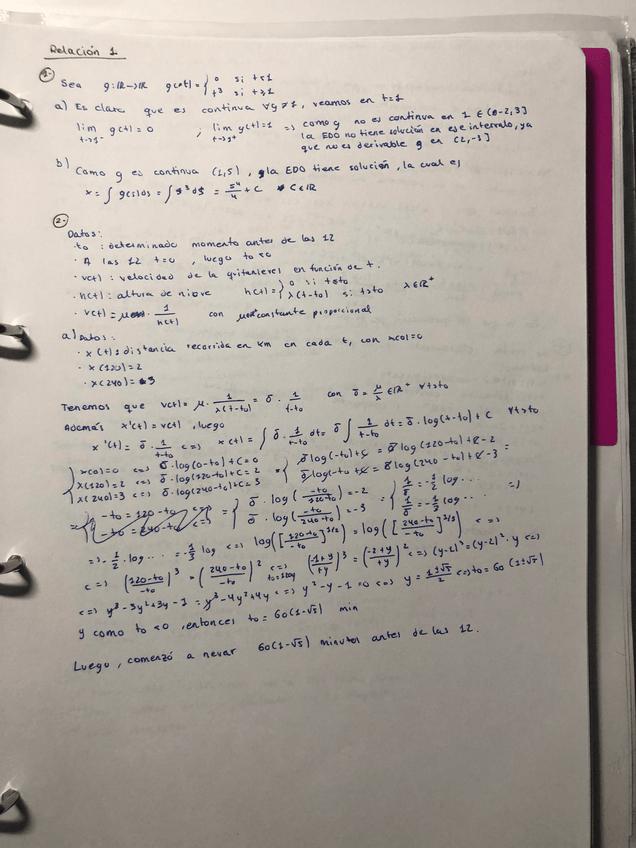 Relación 1
1. Sea g: ℝ→ℝ g(t)= { 0 si t<1
t³ si t≥1
a) Es claro que es continua ∀y≠1, veamos en t=1
lim g(t)=0 , lim g(t)=1 => como g no es continua en 1 ∈
t→1⁻ t→1⁺ la EDO no tiene solución en ese intervalo, ya
que no es derivable g en
b) Como g es continua (1,5), la EDO tiene solución, la cual es
x = ∫ g(s)ds = ∫ s³ ds = s⁴/4 + C C∈ℝ
2.
Datos:
· to : determinado momento antes de las 12
· A las 12 t=0 , luego to<0
· v(t) : velocidad de la quitanieves en función de t.
· h(t): altura de nieve h(t)= { 0 si t≤to
λ(t-to) si t>to λ∈ℝ⁺
· v(t)= μ · 1/h(t) con μ constante proporcional
a) Datos:
· x(t): distancia recorrida en km en cada t, con x(0)=0
· x(120)=2
· x(240)=3
Tenemos que v(t)= μ · 1/λ(t-to) = σ · 1/t-to con σ = μ/λ ∈ℝ⁺ ∀t>to
Además x'(t)=v(t) , luego
x'(t)= σ · 1/t-to <=> x(t)= ∫ σ · 1/t-to dt= σ ∫ 1/t-to dt = σ · log(t-to)+C ∀t>to
x(0)=0 <=> σ·log(0-to)+C=0
x(120)=2 <=> σ·log(120-to)+C=2 σ log(-to)+C = σ log(120-to)+C-2
x(240)=3 <=> σ·log(240-to)+C=3 σ log(-to)+C = σ log(240-to)+C-3
σ · log(-to/120-to)=-2 1/σ = -1/2 log...
σ · log(-to/240-to)=-3 1/σ = -1/3 log... =>
=> -1/2 · log... = -1/3 log <=> log([120-to/-to]^1/2) = log([240-to/-to]^1/3) <=>
<=> (120-to/-to)³ = (240-to/-to)² <=> to=120y (-1+y/+y)³ = (-2+y/+y)² <=>
<=> y³-3y²+3y-1 = y³-4y²+4y <=> y²-y-1=0 <=> y = 1±√5/2 <=> to=60(1±√5)
y como to<0 , entonces to = 60(1-√5) min
Luego, comenzó a nevar 60(1-√5) minutos antes de las 12.